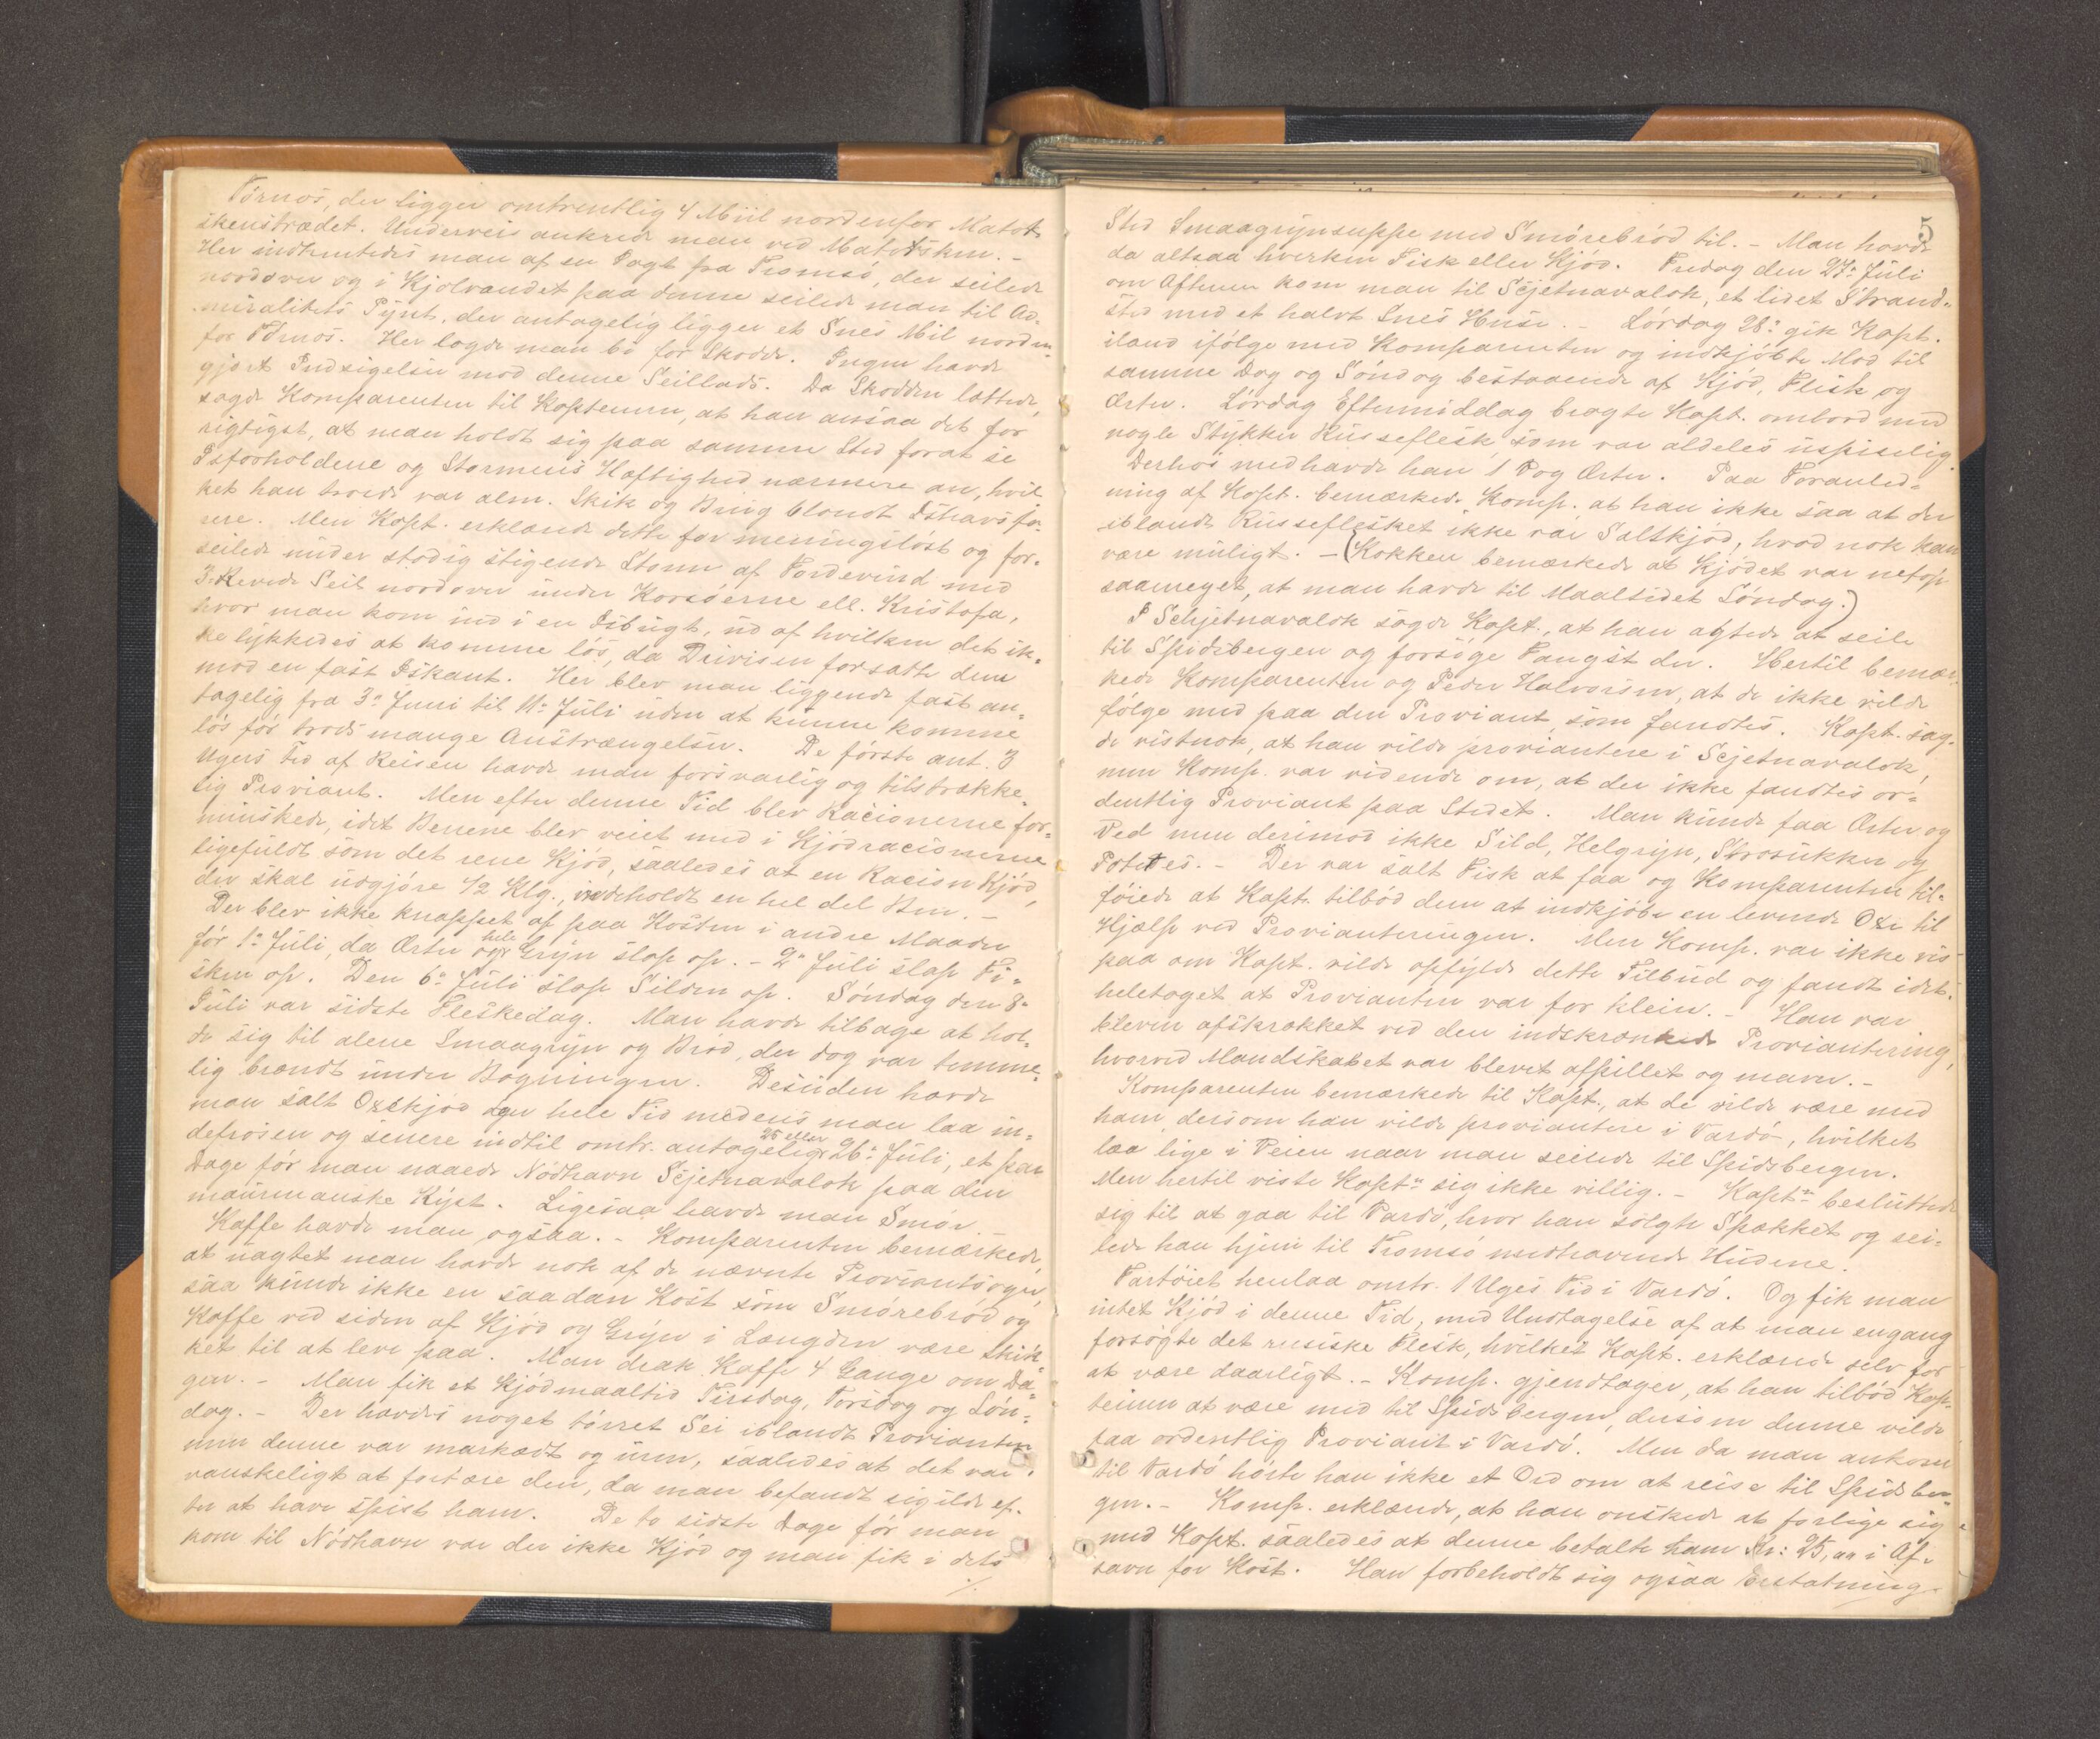 Pörnos, der ligger omtrentlig 4 Miil nordenfor Matot-
skenstrædet. Underveis ankrede man ved Matotsken. -
Her indhentedes man af en Jagt fra Tromsö, der seilede
nordover og i Kjölvandet paa denne seilede man til Ad-
miralitets Pynt, der antagelig ligger et Snes Mil norden-
for Pörnos. Her lagde man bi for Skodde. Ingen havde
gjort Indsigelse mod denne Seillads. Da Skodden lettede,
sagde Komparenten til Kapteinen, at han ansaa det for
rigtigst, at man holdt sig paa samme Sted forat se
Isforholdene og Stormens Hæftighed nærmere an, hvil-
ket han troede var alm. Skik og Brug blandt Ishavsfa-
rere. Men Kapt. erklærede dette for meningslöst og for-
seilede under stadig stigende Storm af Fordevind med
3-Revede Seil nordover under Korsöerne ell. Kristofa,
hvor man kom ind i en Isbugt, ud af hvilken det ik-
ke lykkedes at komme lös, da Drivisen forsatte dem
mod en fast Iskant. Her blev man liggende fast an-
tagelig fra 3º Juni til 11º Juli uden at kunne komme
lös för trods mange Anstrængelser. De förste ant. 3
Ugers Tid af Reisen havde man forsvarlig og tilstrække-
lig Proviant. Men efter denne Tid blev Racionerne for-
minskede, idet Benene blev veiet med i Kjödracionerne
ligefuldt som det rene Kjöd, saaledes at en Racion Kjöd,
der skal udgjöre 1/2 Klg., indeholdt en hel del Ben. -
Der blev ikke knappet af paa Kosten i andre Maader
för 1º Juli, da Erter og hele Gryn slap op. - 2º Juli slap Fi-
sken op. Den 6º Juli slap Silden op. Söndag den 8º
Juli var sidste Fleskedag. Man havde tilbage at hol-
de sig til alene Smaagryn og Bröd, der dog var temme-
lig brændt under Bagningen. Desuden havde
man salt Oxekjöd den hele Tid medens man laa in-
defrosen og senere indtil omtr. antagelig 25 eller 26º Juli, et par
Dage för man naaede Nödhavn Scjetnavalok paa den
maurmanske Kyst. Ligesaa havde man Smör.
Kaffe havde man ogsaa. - Komparenten bemærkede,
at uagtet man havde nok af de nævnte Proviantsorter,
saa kunde ikke en saadan Kost som Smörebröd og
Kaffe ved siden af Kjöd og Gryn i Længden være skik-
ket til at leve paa. Man drak Kaffe 4 Gange om Da-
gen. - Man fik et Kjödmaaltid Tirsdag, Torsdag og Sön-
dag. - Der havdes noget törret Sei iblandt Provianten
men denne var markædt og uren, saaledes at det var
vanskeligt at fortære den, da man befandt sig ilde ef-
ter at have spist ham. De to sidste Dage för man
kom til Nödhavn var der ikke Kjöd og man fik i dets
./.
5
Sted Smaagrynsuppe med Smörebröd til. - Man havde
da altsaa hverken Fisk eller Kjöd. Fredag den 27º Juli
om Aftenen kom man til Scjetnavalok, et lidet Strand-
sted med et halvt Snes Huse. - Lördag 28º gik Kapt.
iland ifölge med Komparenten og indkjöbte Mad til
samme Dag og Söndag bestaaende af Kjöd, Flesk og
Erter. Lördag Eftermiddag bragte Kapt. ombord med
nogle Stykker Russeflesk som var aldeles uspiselig.
Derhos medhavde han 1 Pog Erter. Paa Foranled-
ning af Kapt. bemærkede Komp. at han ikke saa at der
iblandt Russeflesket ikke var Saltkjöd, hvad nok kan
være muligt. - (Kokken bemærkede at Kjödet var netop
saameget, at man havde til Maaltidet Söndag.)
I Schjetnavalok sagde Kapt., at han agtede at seile
til Spidsbergen og forsöge Fangst der. Hertil bemær-
kede Komparenten og Peder Halvorsen, at de ikke vilde
fölge med paa den Proviant, som fandtes. Kapt. sag-
de vistnok, at han vilde proviantere i Scjetnavalok,
men Komp. var vidende om, at der ikke fandtes or-
dentlig Proviant paa Stedet. Man kunde faa Erter og
Ved men derimod ikke Sild, Helgryn, Strösukker og
Potetes. - Der var salt Fisk at faa og Komparenten til-
föiede at Kapt. tilböd dem at indkjöbe en levende Oxe til
Hjælp ved Provianteringen. Men Komp. var ikke vis
paa om Kapt. vilde opfylde dette Tilbud og fandt idet-
heletaget at Provianten var for klein. - Han var
bleven afskrækket ved den indskrænkede Proviantering,
hvorved Mandskabet var blevet afpillet og maver. -
Komparenten bemærkede til Kapt., at de vilde være med
ham, dersom han vilde proviantere i Vardö, hvilket
laa lige i Veien naar man seilede til Spidsbergen.
Men hertil viste Kaptn sig ikke villig. - Kaptn besluttede
sig til at gaa til Vardö, hvor han solgte Spækket og sei-
lede han hjem til Tromsö medhavende Hudene.
Fartöiet henlaa omtr. 1 Uges Tid i Vardö. Og fik man
intet Kjöd i denne Tid, med Undtagelse af at man engang
forsögte det russiske Flesk, hvilket Kapt. erklærede selv for
at være daarligt. - Komp. gjendtager, at han tilböd Kap-
teinen at være med til Spidsbergen, dersom denne vilde
faa ordentlig Proviant i Vardö. Men da man ankom
til Vardö hörte han ikke et Ord om at reise til Spidsber-
gen. - Komp. erklærede, at han önskede at forlige sig
med Kapt. saaledes at denne betalte ham Kr: 25,00 i Af-
savn for Kost. Han forbeholdt sig ogsaa Erstatning